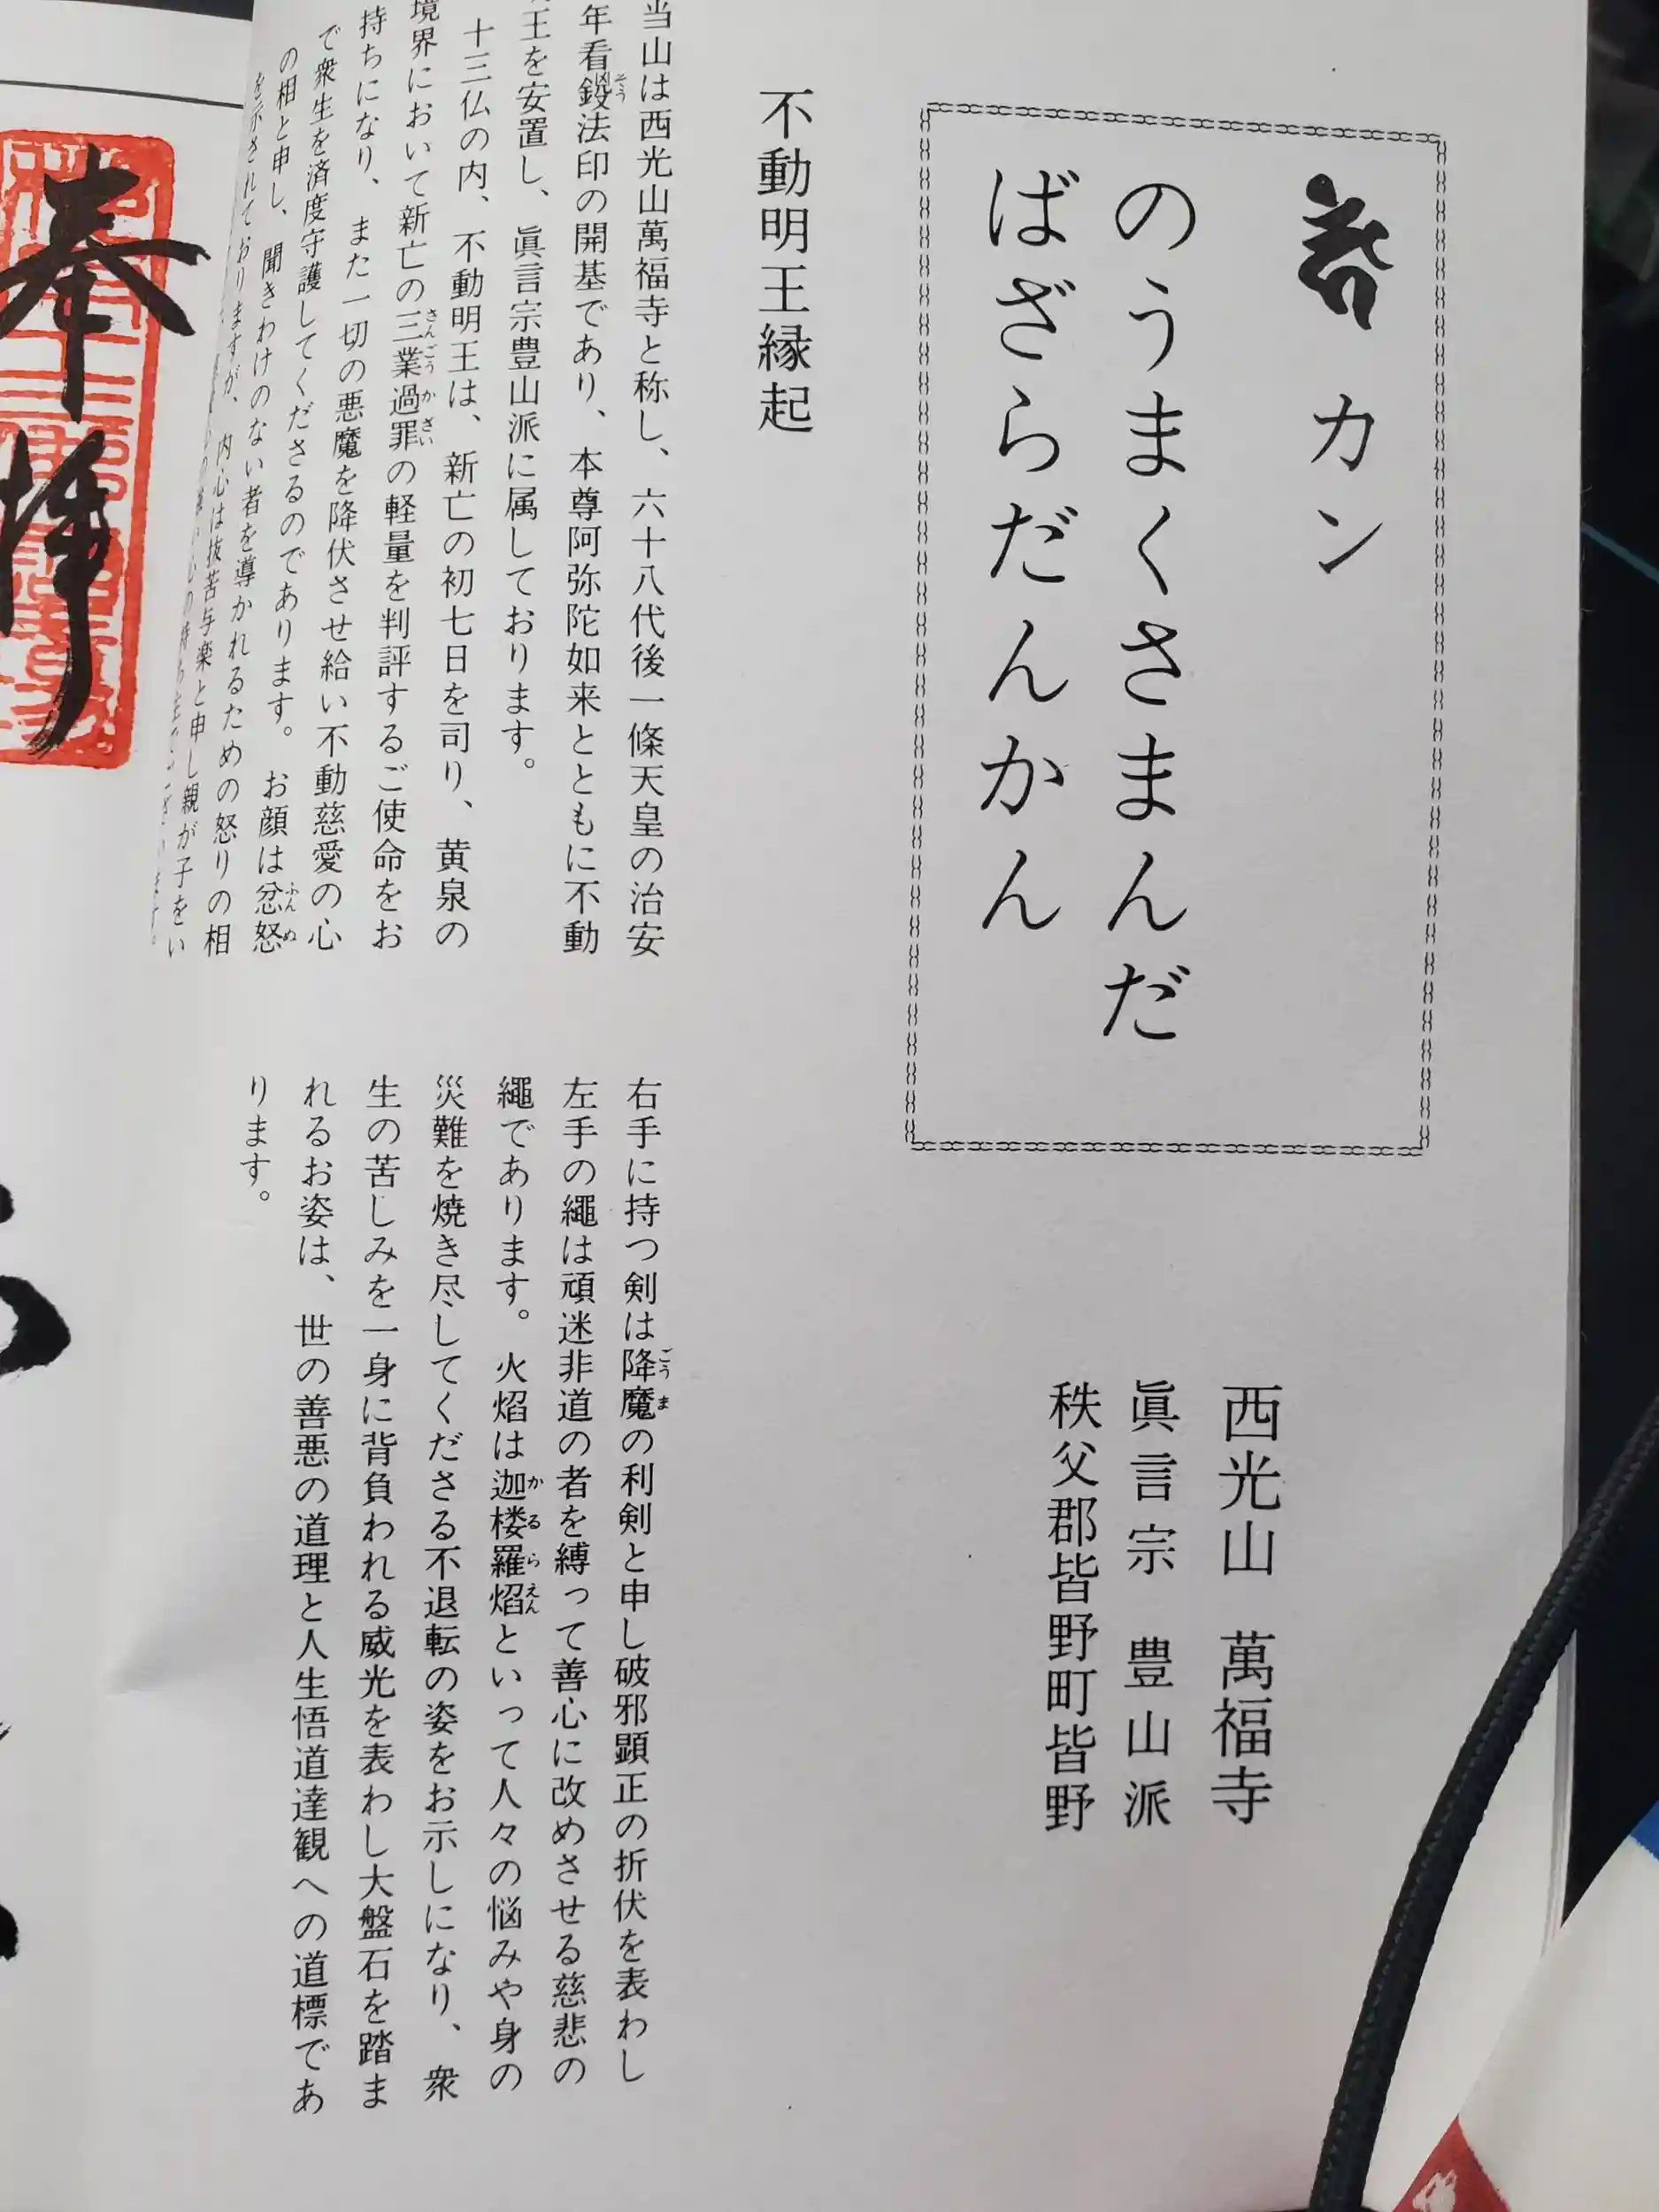 カン
のうまくさまんだ
ばざらだんかん
西光山 萬福寺
眞言宗 豊山派
秩父郡皆野町皆野
不動明王縁起
当山は西光山萬福寺と称し、六十八代後一條天皇の治安
年看鋄法印の開基であり、本尊阿弥陀如来とともに不動
王を安置し、眞言宗豊山派に属しております。
十三仏の内、不動明王は、新亡の初七日を司り、黄泉の
境界において新亡の三業過罪の軽量を判評するご使命をお
持ちになり、また一切の悪魔を降伏させ給い不動慈愛の心
で衆生を済度守護してくださるのであります。お顔は忿怒
の相と申し、聞きわけのない者を導かれるための怒りの相
を示されておりますが、内心は抜苦与楽と申し親が子をい
右手に持つ剣は降魔の利剣と申し破邪顕正の折伏を表わし
左手の繩は頑迷非道の者を縛って善心に改めさせる慈悲の
繩であります。火焰は迦楼羅焰といって人々の悩みや身の
災難を焼き尽してくださる不退転の姿をお示しになり、衆
生の苦しみを一身に背負われる威光を表わし大盤石を踏ま
れるお姿は、世の善悪の道理と人生悟道達観への道標であ
ります。
奉拝